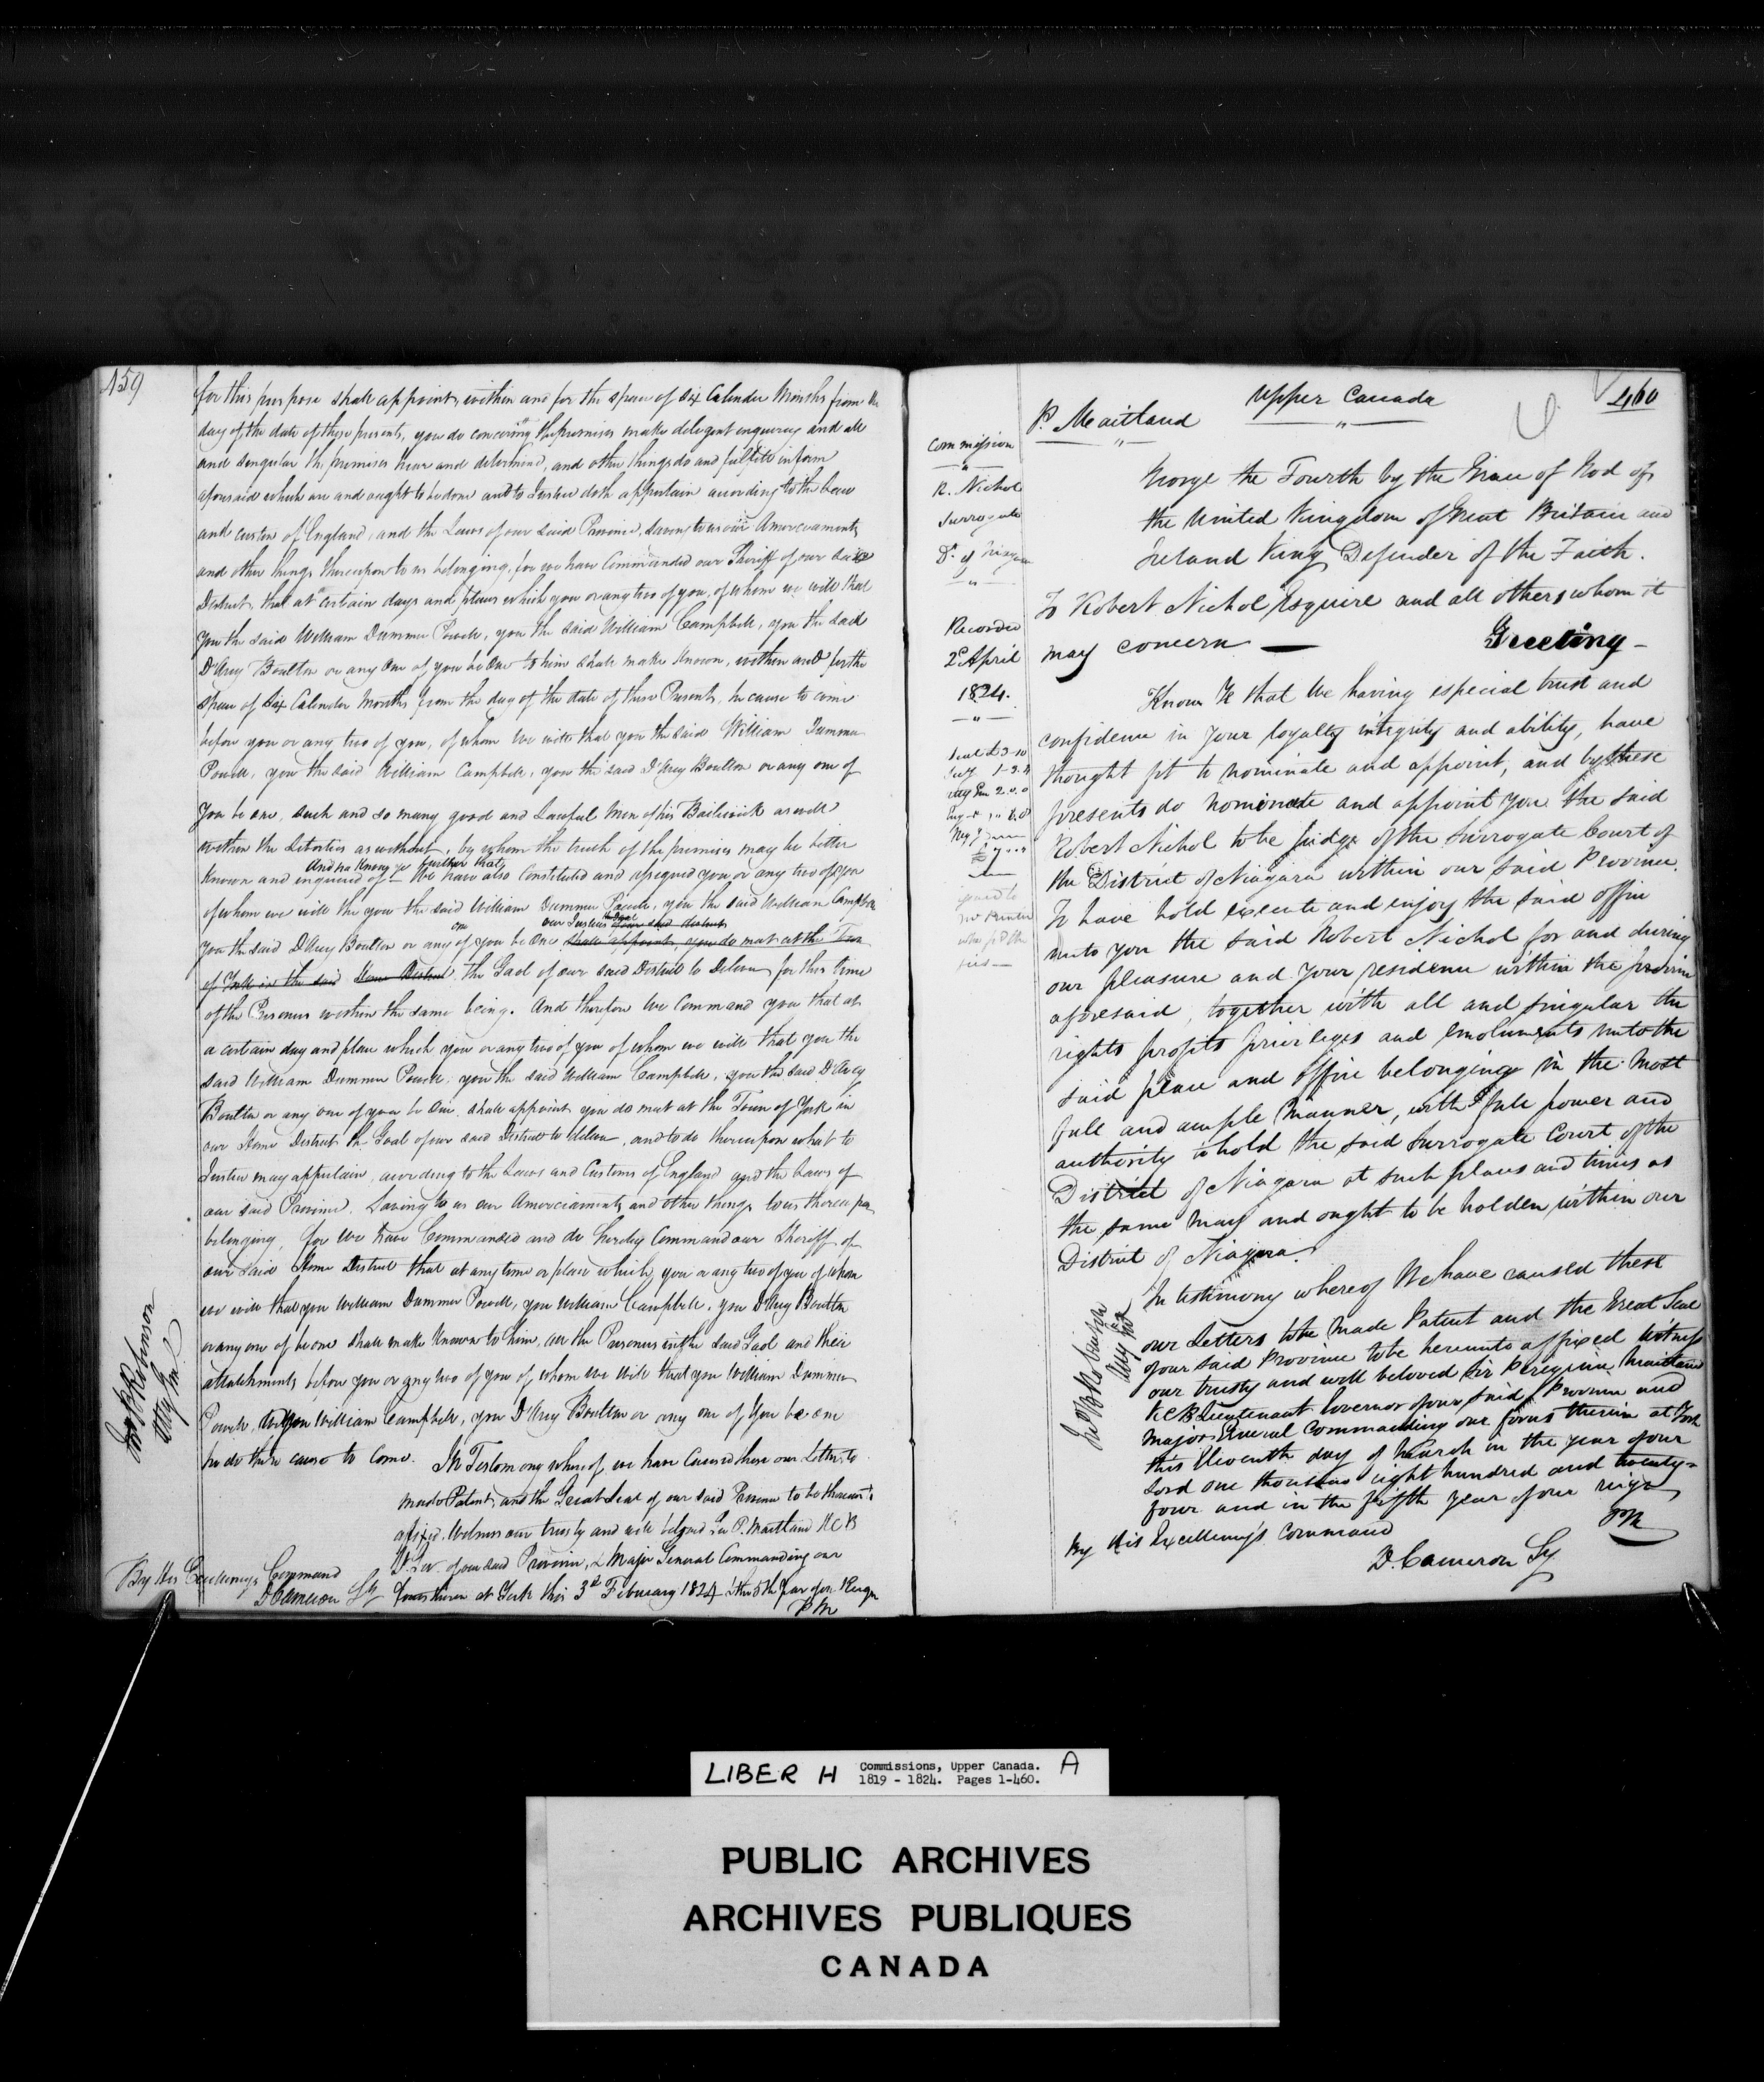 459
for this purpose shall appoint, within and for the space of Six Calender Months from the
day of the date of these presents, you do concerning the premises make deligent enquirey and all
and singular the premises hear and determine, and other things do and fulfill in form
aforesaid which are and ought to be done and to Justice doth appertain according to the Laws
and custom of England, and the Laws of our Said Province, Saving to us our Amerciaments
and other things thereupon to us belonging, for we have Commanded our Sheriff of our Said
District, that at certain days and places which you or any two of you, of whom we will that
you the said William Dummer Powell, you the Said William Campbell, you the said
D'Arcy Boulton or any One of you be One to him shall make Known, within and for the
space of Six Calender Months from the day of the date of these Presents, he cause to come
before you or any two of you, of whom We will that you the said William Dummer
Powell, you the said William Campbell, you the said D'Arcy Boulton or any one of
you be one, Such and so many good and Lawful Men of his Bailiwick as well
within the Liberties as without, by whom the truth of the premises may be better
And Know ye further that
Known and inquired of We have also Constituted and assigned you or any two of you
of whom we will the you the said William Dummer Powell, you the said William Campbell
one our Justices
you the said D'Arcy Boulton or any of you be One shall appoint, you do meet at the Town
of York in the said Home District the Gaol of our said District to Deliver for this time
of the Prisoners within the same being. And therefore We Command you that at
a certain day and place which you or any two of you of whom we will that you the
said William Dummer Powell, you the said William Campbell, you the said D'Arcy
Boulton or any one of you be One, shall appoint you do meet at the Town of York in
our Home District the Gaol of our said District to deliver, and to do thereupon what to
Justice may appertain, according to the Laws and Customs of England and the Laws of
our said Province. Saving to us our Amerciaments, and other things to us thereupon
belonging, for We have Commanded and do hereby Command our Sheriff of
our said Home District that at any time or place which you or any two of you of whom
we will that you William Dummer Powell, you William Campbell, you D'Arcy Boulton
or any one of be one shall make Known to him, all the Prisoners in the said Gaol and their
attachments before you or any two of you of whom We Will that you William Dummer
Powell, you William Campbell, you D'Arcy Boulton or any one of you be one
he do there cause to Come. In Testomony whereof we have Caused these our Letters to
made Patent, and the Great Seal of our said Province to be thereunto
afixed. Witness our trusty and well beloved Sir P. Maitland KCB
Lt. Gov. of our said Province, & Major General Commanding our
By His Excellency's Command
DCameron Sy forces therein at York this 3d February 1824 & the 5th year of our Reign
PM
Jno B Robinson
Atty Gnl
460
Upper Canada
P. Maitland
Commission
R. Nichol
Surrogate
Dt. of Niagara
Recorded
2d April
1824.
George the Fourth by the Grace of God of
the United Kingdom of Great Britain and
Ireland King Defender of the Faith.
To Robert Nichol Esquire and all others whom it
may concern — Greeting —
Know Ye that We having especial trust and
confidence in your loyalty integrity and ability, have
thought fit to nominate and appoint, and by these
presents do nominate and appoint you the said
Robert Nichol to be Judge of the Surrogate Court of
the District of Niagara within our said Province.
To have hold execute and enjoy the said office
unto you the said Robert Nichol for and during
our pleasure and your residence within the province
aforesaid, together with all and singular the
rights profits privileges and emoluments unto the
said place and office belonging in the most
full and ample manner, with full power and
authority to hold the said Surrogate Court of the
District of Niagara at such places and times as
the same may and ought to be holden within our
District of Niagara.
In testimony whereof We have caused these
our Letters to be made Patent and the Great Seal
of our said Province to be hereunto affixed Witness
our trusty and well beloved Sir Peregrine Maitland
KCB Lieutenant Governor of our said Province and
Major General Commanding our forces therein at York
this Eleventh day of March in the year of our
Lord one thousand eight hundred and twenty-
four and in the fifth year of our reign
PM
By His Excellency's Command
D. Cameron Sy
Jno B Robinson
Atty Gnl
LIBER H Commissions, Upper Canada. A
1819 - 1824. Pages 1-460.
PUBLIC ARCHIVES
ARCHIVES PUBLIQUES
CANADA